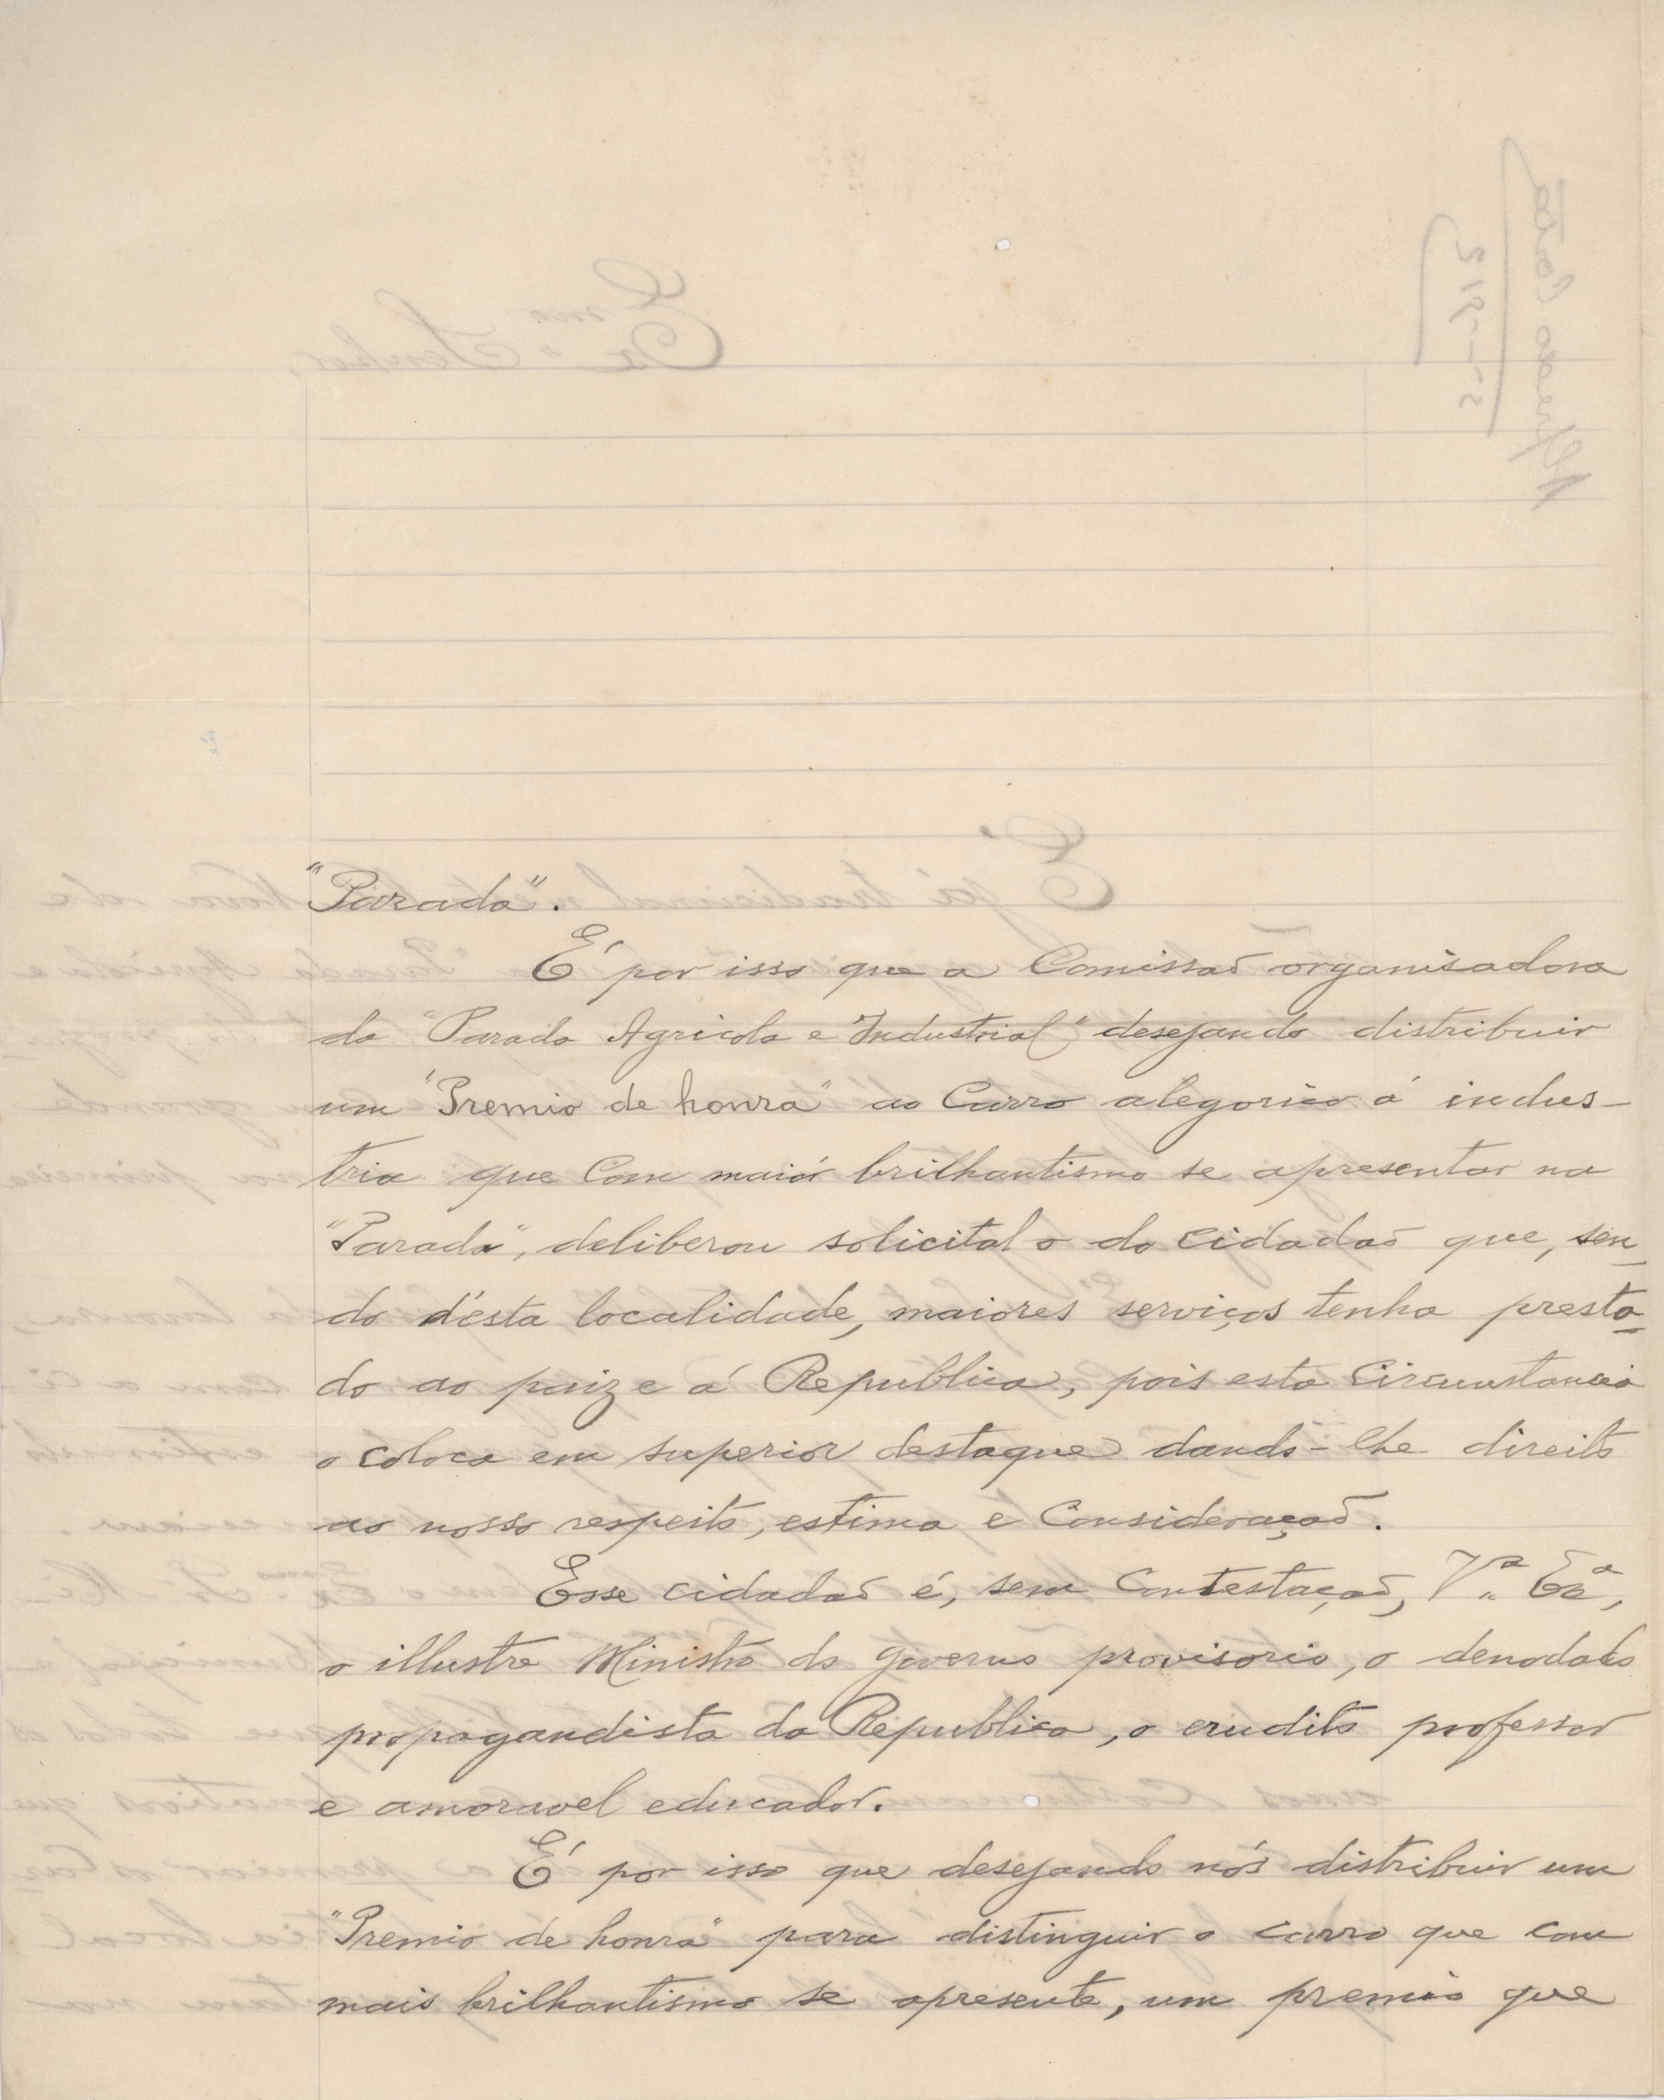 "Parada".
É por isso que a Comissaõ organisadora
da "Parada Agricola e Industrial" desejando distribuir
um "Premio de honra" ao Carro alegorico á indus-
tria que com maiór brilhantismo se apresentar na
"Parada", deliberou solicital o do cidadaõ que, sen-
do d'ésta localidade, maiores serviços tenha presta-
do ao paiz e á Republica, pois esta circunstancia
o coloca em superior destaque dando-lhe direito
ao nosso respeito, estima e Consideraçaõ.
Esse cidadaõ é, sem Contestaçaõ, V.ª Exª,
o illustre Ministro do governo provisorio, o denodado
propagandista da Republica, o erudito professor
e amoravel educador.
É por isso que desejando nós distribuir um
"Premio de honra" para distinguir o carro que com
mais brilhantismo se apresente, um premio que